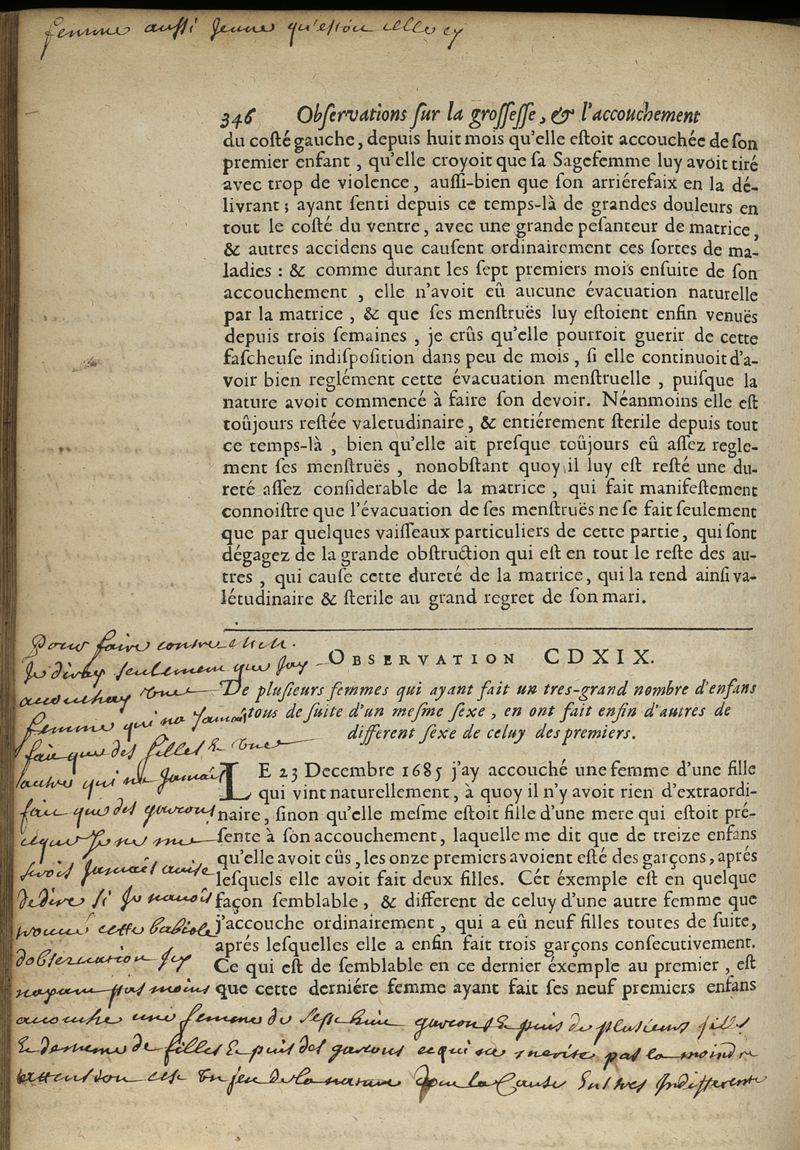 femme aussi jeune qu'estoit celle cy
346 Obſervations ſur la groſſeſſe, & l'accouchement
du coſté gauche, depuis huit mois qu'elle eſtoit accouchée de ſon
premier enfant, qu'elle croyoit que ſa Sagefemme luy avoit tiré
avec trop de violence, auſſi-bien que ſon arriérefaix en la dé-
livrant; ayant ſenti depuis ce temps-là de grandes douleurs en
tout le coſté du ventre, avec une grande peſanteur de matrice,
& autres accidens que cauſent ordinairement ces ſortes de ma-
ladies : & comme durant les ſept premiers mois enſuite de ſon
accouchement, elle n'avoit eû aucune évacuation naturelle
par la matrice, & que ſes menſtruës luy eſtoient enfin venuës
depuis trois ſemaines, je crûs qu'elle pourroit guerir de cette
faſcheuſe indiſpoſition dans peu de mois, ſi elle continuoit d'a-
voir bien reglément cette évacuation menſtruelle, puiſque la
nature avoit commencé à faire ſon devoir. Néanmoins elle eſt
toûjours reſtée valetudinaire, & entiérement ſterile depuis tout
ce temps-là, bien qu'elle ait preſque toûjours eû aſſez regle-
ment ſes menſtruës, nonobſtant quoy il luy eſt reſté une du-
reté aſſez conſiderable de la matrice, qui fait manifeſtement
connoiſtre que l'évacuation de ſes menſtruës ne ſe fait ſeulement
que par quelques vaiſſeaux particuliers de cette partie, qui ſont
dégagez de la grande obſtruction qui eſt en tout le reſte des au-
tres, qui cauſe cette dureté de la matrice, qui la rend ainſi va-
létudinaire & ſterile au grand regret de ſon mari.
OBSERVATION CDXIX.
De pluſieurs femmes qui ayant fait un tres-grand nombre d'enfans
tous de ſuite d'un meſme ſexe, en ont fait enfin d'autres de
different ſexe de celuy des premiers.
LE 23 Decembre 1685 j'ay accouché une femme d'une fille
qui vint naturellement, à quoy il n'y avoit rien d'extraordi-
naire, ſinon qu'elle meſme eſtoit fille d'une mere qui eſtoit pré-
ſente à ſon accouchement, laquelle me dit que de treize enfans
qu'elle avoit eüs, les onze premiers avoient eſté des garçons, aprés
leſquels elle avoit fait deux filles. Cét éxemple eſt en quelque
façon ſemblable, & different de celuy d'une autre femme que
j'accouche ordinairement, qui a eû neuf filles toutes de ſuite,
aprés leſquelles elle a enfin fait trois garçons conſecutivement.
Ce qui eſt de ſemblable en ce dernier éxemple au premier, eſt
que cette derniére femme ayant fait ſes neuf premiers enfans
Pour faire
je diray seulement que jay
accouchay une
femme qui na jamais
fait que des filles & une
autre qui na jamais
fait que des garcons
ce que je ne me
serois jamais avise
de dire si je navois
trouve cette babiole
dobservation jy
accouche une femme de sept huit garcons & puis de plusieurs filles
& de mesme de filles & puis des garcons ce qui ne merite pas la moindre
attention cest un jeu de la nature